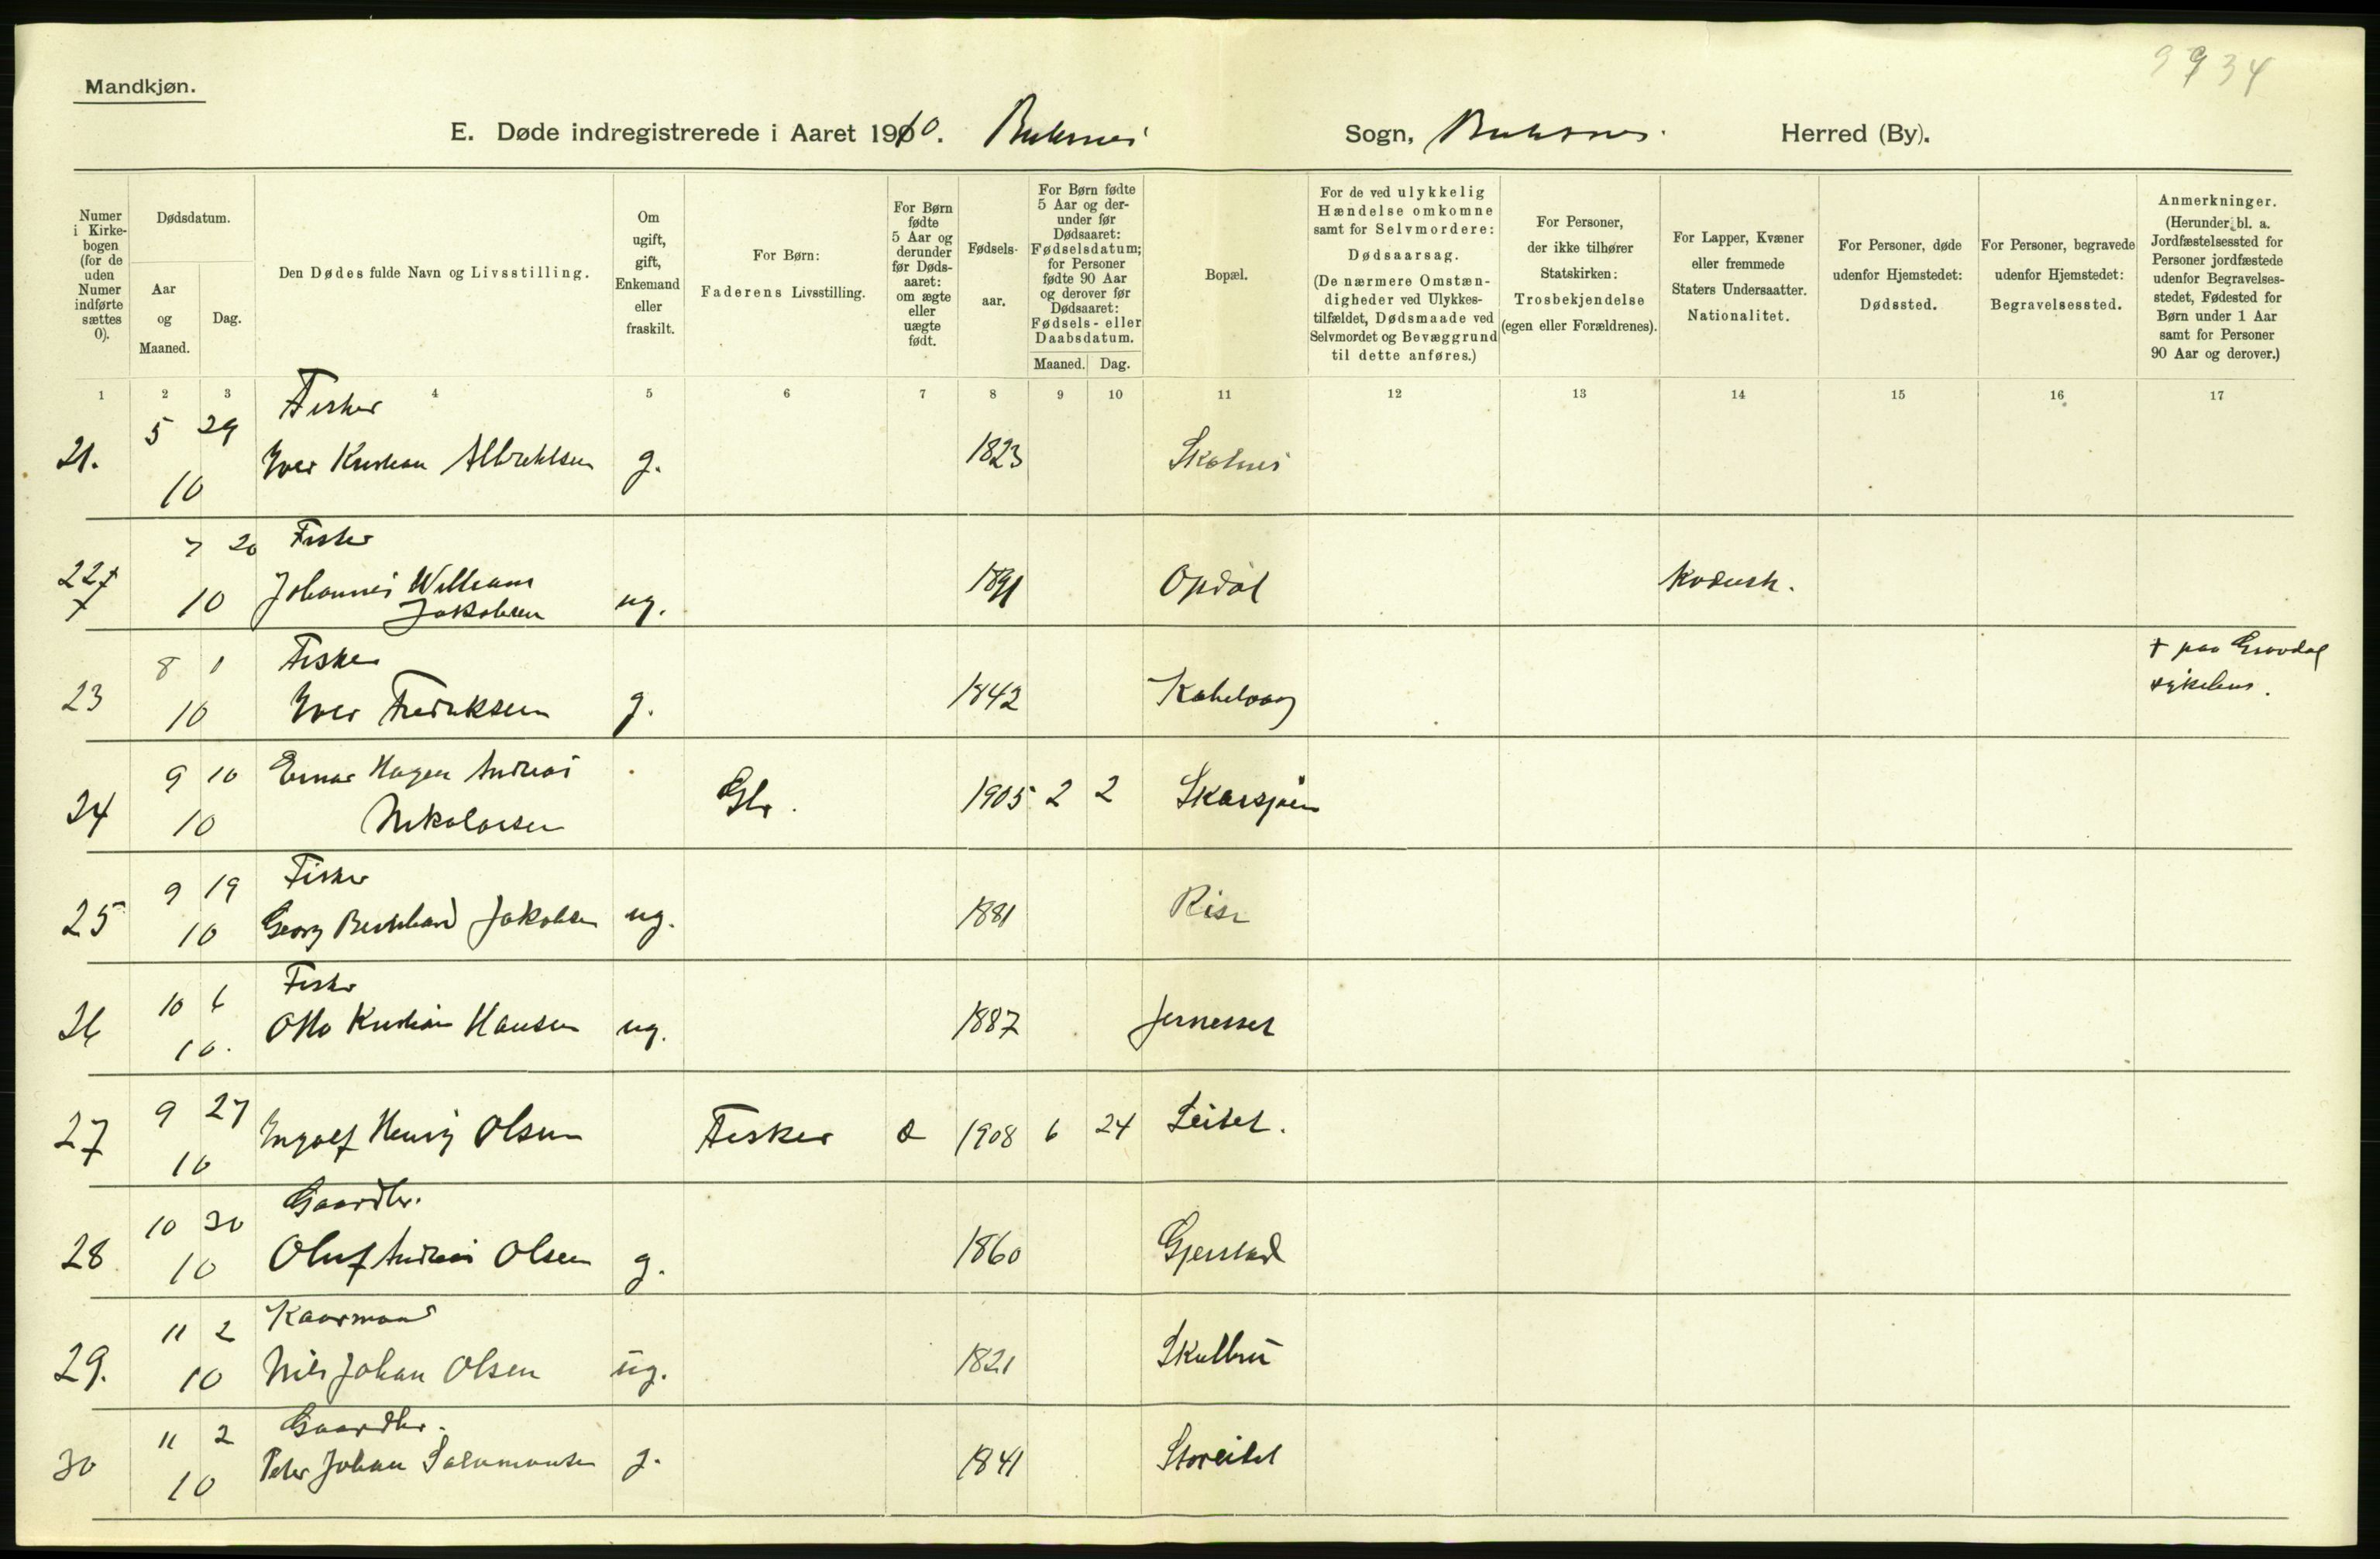 9934
Mandkjøn.
E. Døde indregistrerede i Aaret 1910. Buksnes Sogn, Buksnes Herred (By).
Numer i Kirkebogen (for de uden Numer indførte sættes 0).
Dødsdatum.
Aar og Maaned.
Dag.
Den Dødes fulde Navn og Livsstilling.
Om ugift, gift, Enkemand eller fraskilt.
For Børn: Faderens Livsstilling.
For Børn fødte 5 Aar og derunder før Døds-aaret: om ægte eller uægte født.
Fødsels-aar.
For Børn fødte 5 Aar og der-under før Dødsaaret: Fødselsdatum; for Personer fødte 90 Aar og derover før Dødsaaret: Fødsels- eller Daabsdatum.
Maaned. Dag.
Bopæl.
For de ved ulykkelig Hændelse omkomne samt for Selvmordere: Dødsaarsag. (De nærmere Omstæn-digheder ved Ulykkes-tilfældet, Dødsmaade ved Selvmordet og Bevæggrund til dette anføres.)
For Personer, der ikke tilhører Statskirken: Trosbekjendelse (egen eller Forældrenes).
For Lapper, Kvæner eller fremmede Staters Undersaatter. Nationalitet.
For Personer, døde udenfor Hjemstedet: Dødssted.
For Personer, begravede udenfor Hjemstedet: Begravelsessted.
Anmerkninger. (Herunder bl. a. Jordfæstelsessted for Personer jordfæstede udenfor Begravelses-stedet, Fødested for Børn under 1 Aar samt for Personer 90 Aar og derover.)
1 2 3 4 5 6 7 8 9 10 11 12 13 14 15 16 17
5 29 Fisker
21. 10 Iver Kristian Albrektsen g. 1823
7 20 Fisker
22 10 Johannes William Jakobsen ug. 1891 Opdøl
8 1 Fisker + paa Gravdal
23 10 Iver Fredriksen g. 1842 Kabelvaag sykehus.
9 10 Einar Hagen Andreas
24 10 Nikolaisen Gbr. 1905 2 2 Skarsjøen
9 19 Fisker
25 10 Georg Bernhard Jakobsen ug. 1881 Rise
10 6 Fisker
26 10. Otto Kristian Hansen ug. 1887
9 27
27 10 Ingolf Henrij Olsen Fisker 1908 6 24 Leitet.
10 30 Gaardbr.
28 10 Oluf Andreas Olsen g. 1860 Gjerstad
11 2 Kaarmand
29. 10 Nils Johan Olsen ug. 1821 Skulbru
11 2 Gaardbr.
30 10 Peter Johan Salamonsen g. 1841 Storeitet